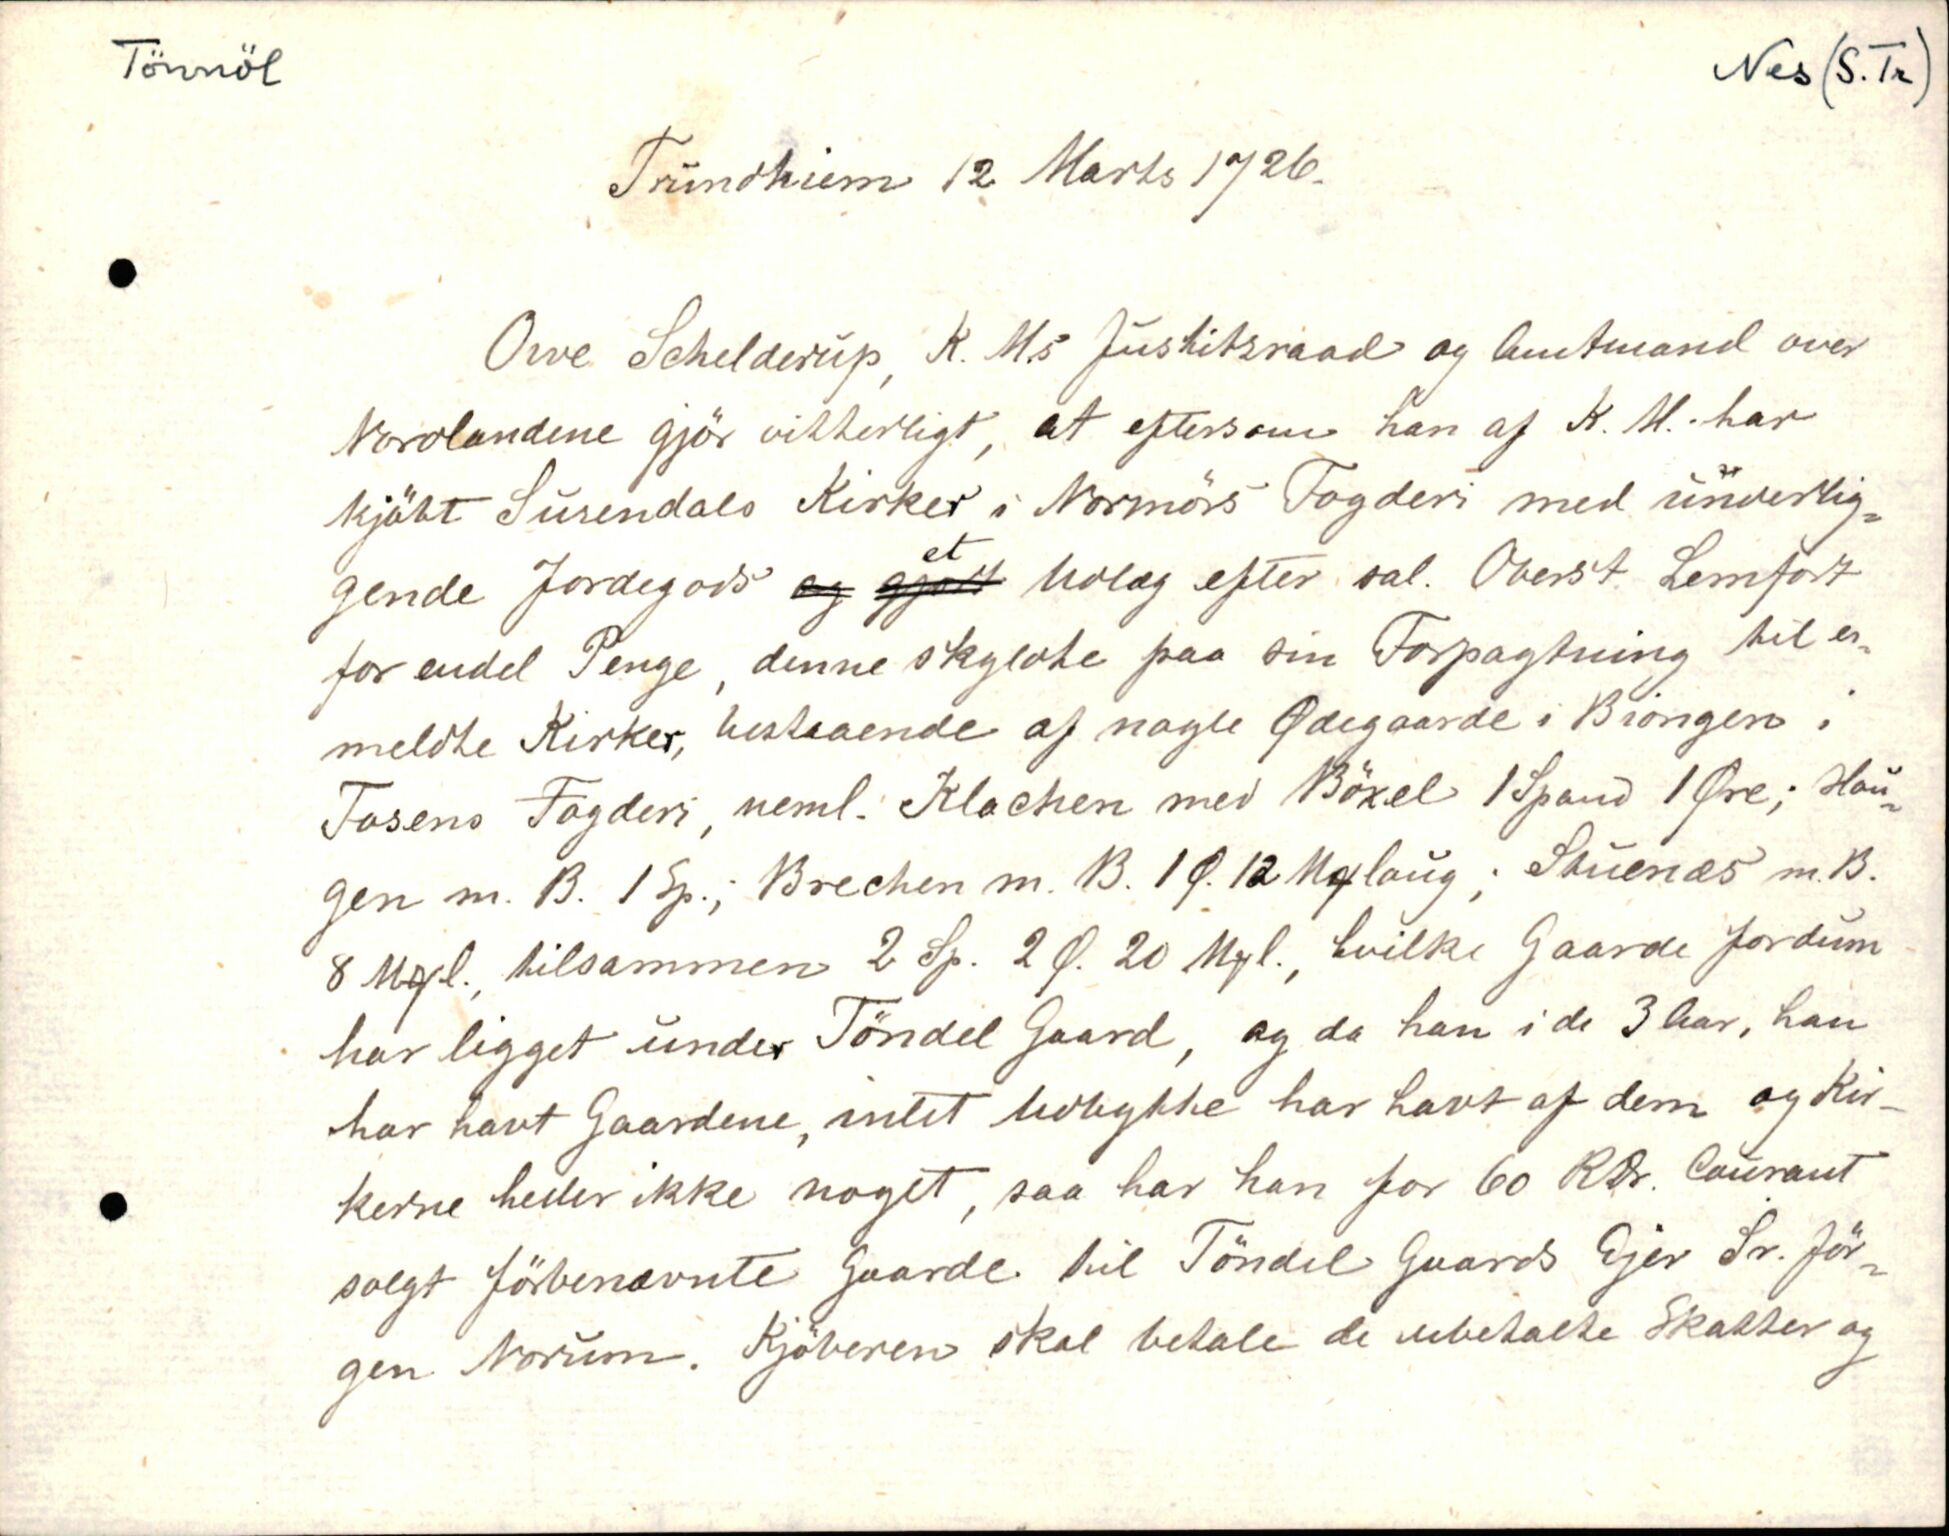 Tönnöl
Nes (S. Tr)
Trundhiem 12 Marts 1726.
Owe Schelderup, K. Ms Justitsraad og Amtmand over
Nordlandene gjör vitterligt, at eftersom han af K. M. har
kjöbt Surendals Kirker i Normörs Fogderi med underlig-
gende Jordegods og gjort et Udlæg efter sal. Oberst Lemfort
for endel Penge, denne skyldte paa sin Forpagtning til er-
meldte Kirker, bestaaende af nogle Ødegaarde i Biongen i
Fosens Fogderi, neml. Klachen med Böxel 1 Spand 1 Øre; Hau-
gen m. B. 1 Sp.; Brechen m. B. 1 Ø. 12 Mqlaug; Stuenæs m. B.
8 Mql., tilsammen 2 Sp. 2 Ø. 20 Mql., hvilke Gaarde fordum
har ligget under Töndel Gaard, og da han i de 3 Aar, han
har havt Gaardene, intet Udbytte har havt af dem og Kir-
kerne heller ikke noget, saa har han for 60 RDr. Courant
solgt förbenævnte Gaarde til Töndel Gaards Ejer Sr. Jör-
gen Norum. Kjöberen skal betale de ubetalte Skatter og